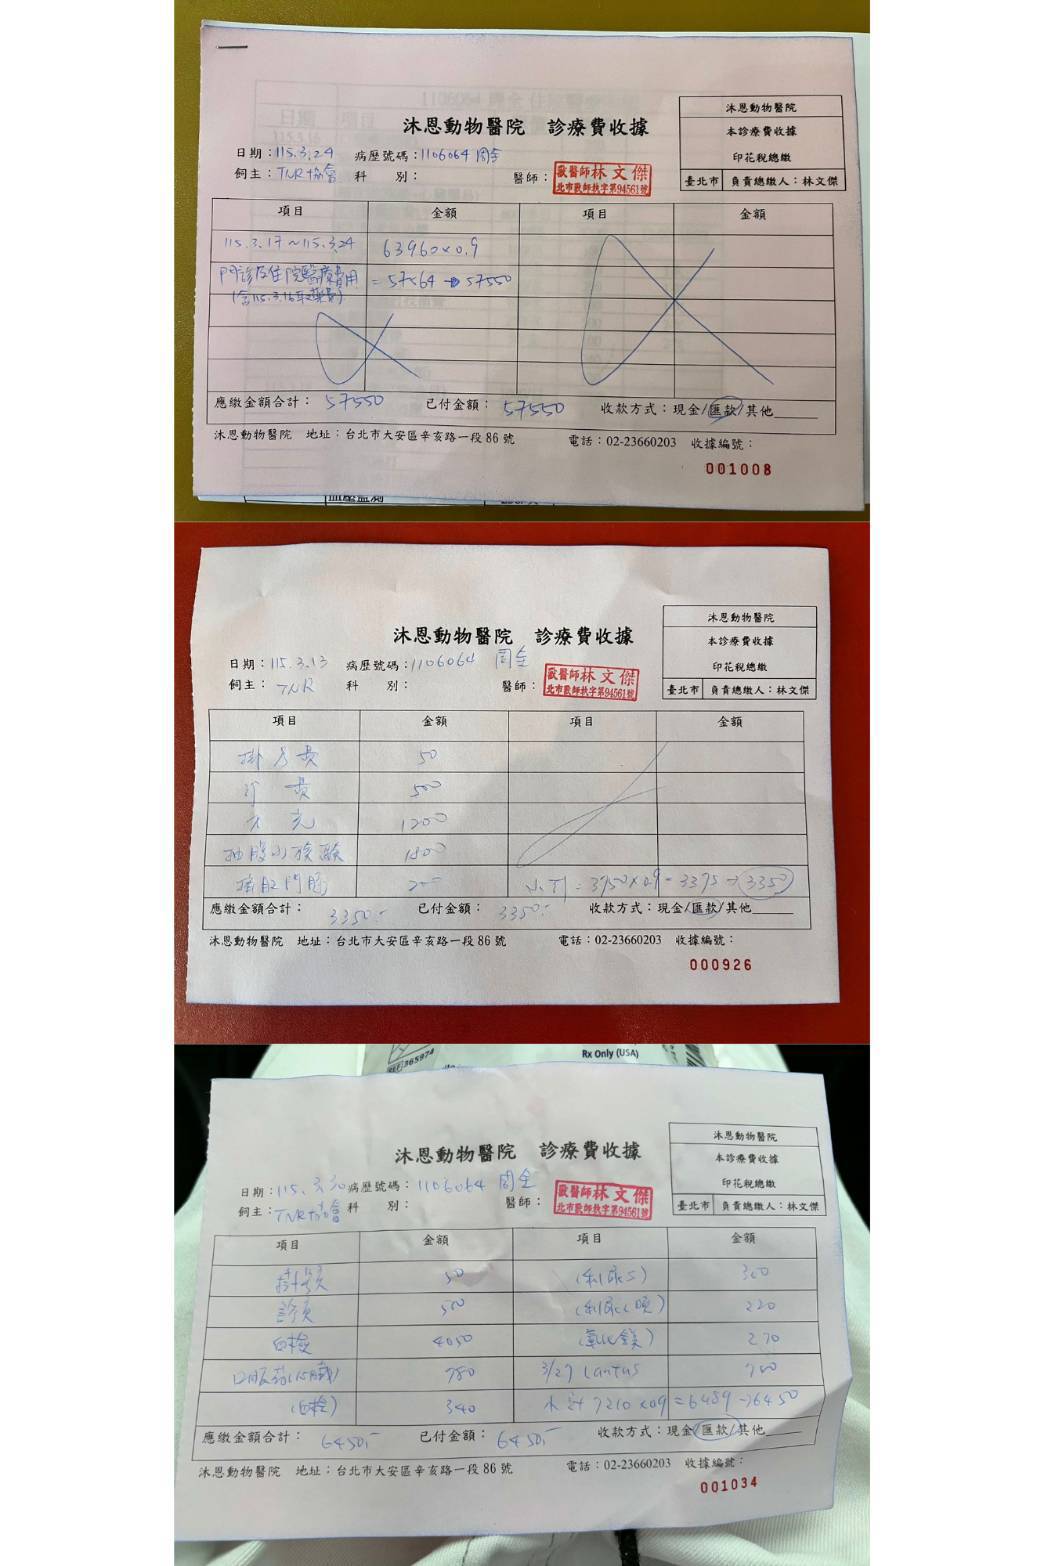 沐恩動物醫院 診療費收據
沐恩動物醫院
本診療費收據
印花稅總繳
臺北市 負責總繳人：林文傑
日期：115.3.24 病歷號碼：1106064 周全
飼主：TNR協會 科 別： 醫師：
獸醫師林文傑
北市獸師執字第94561號
項目 金額 項目 金額
115.3.17～115.3.24 63960×0.9
門診及住院醫療費用 =57564→57550
(含115.3.16
應繳金額合計：57550 已付金額：57550 收款方式：現金/匯款/其他
沐恩動物醫院 地址：台北市大安區辛亥路一段86號 電話：02-23660203 收據編號：
001008
血壓監測
沐恩動物醫院 診療費收據
沐恩動物醫院
本診療費收據
印花稅總繳
臺北市 負責總繳人：林文傑
日期：115.3.13 病歷號碼：1106064 周全
飼主：TNR 科 別： 醫師：
獸醫師林文傑
北市獸師執字第94561號
項目 金額 項目 金額
掛号費 50
診費 500
X光 1200
抽腹水檢驗 1800
200
小計=3750×0.9=3375→3350
應繳金額合計：3350.- 已付金額：3350.- 收款方式：現金/匯款/其他
沐恩動物醫院 地址：台北市大安區辛亥路一段86號 電話：02-23660203 收據編號：
000926
REF 365974
Rx Only (USA)
沐恩動物醫院 診療費收據
沐恩動物醫院
本診療費收據
印花稅總繳
臺北市 負責總繳人：林文傑
日期：115.3.30 病歷號碼：1106064 周全
飼主：TNR協會 科 別： 醫師：
獸醫師林文傑
北市獸師執字第94561號
項目 金額 項目 金額
掛號 50 (利尿S) 360
診費 500 220
血檢 4050 (氧化鎂) 270
780 3/27 Lantus
(血檢) 340 小計7210×0.9=6489→6450
應繳金額合計：6450.- 已付金額：6450.- 收款方式：現金/匯款/其他
沐恩動物醫院 地址：台北市大安區辛亥路一段86號 電話：02-23660203 收據編號：
001034